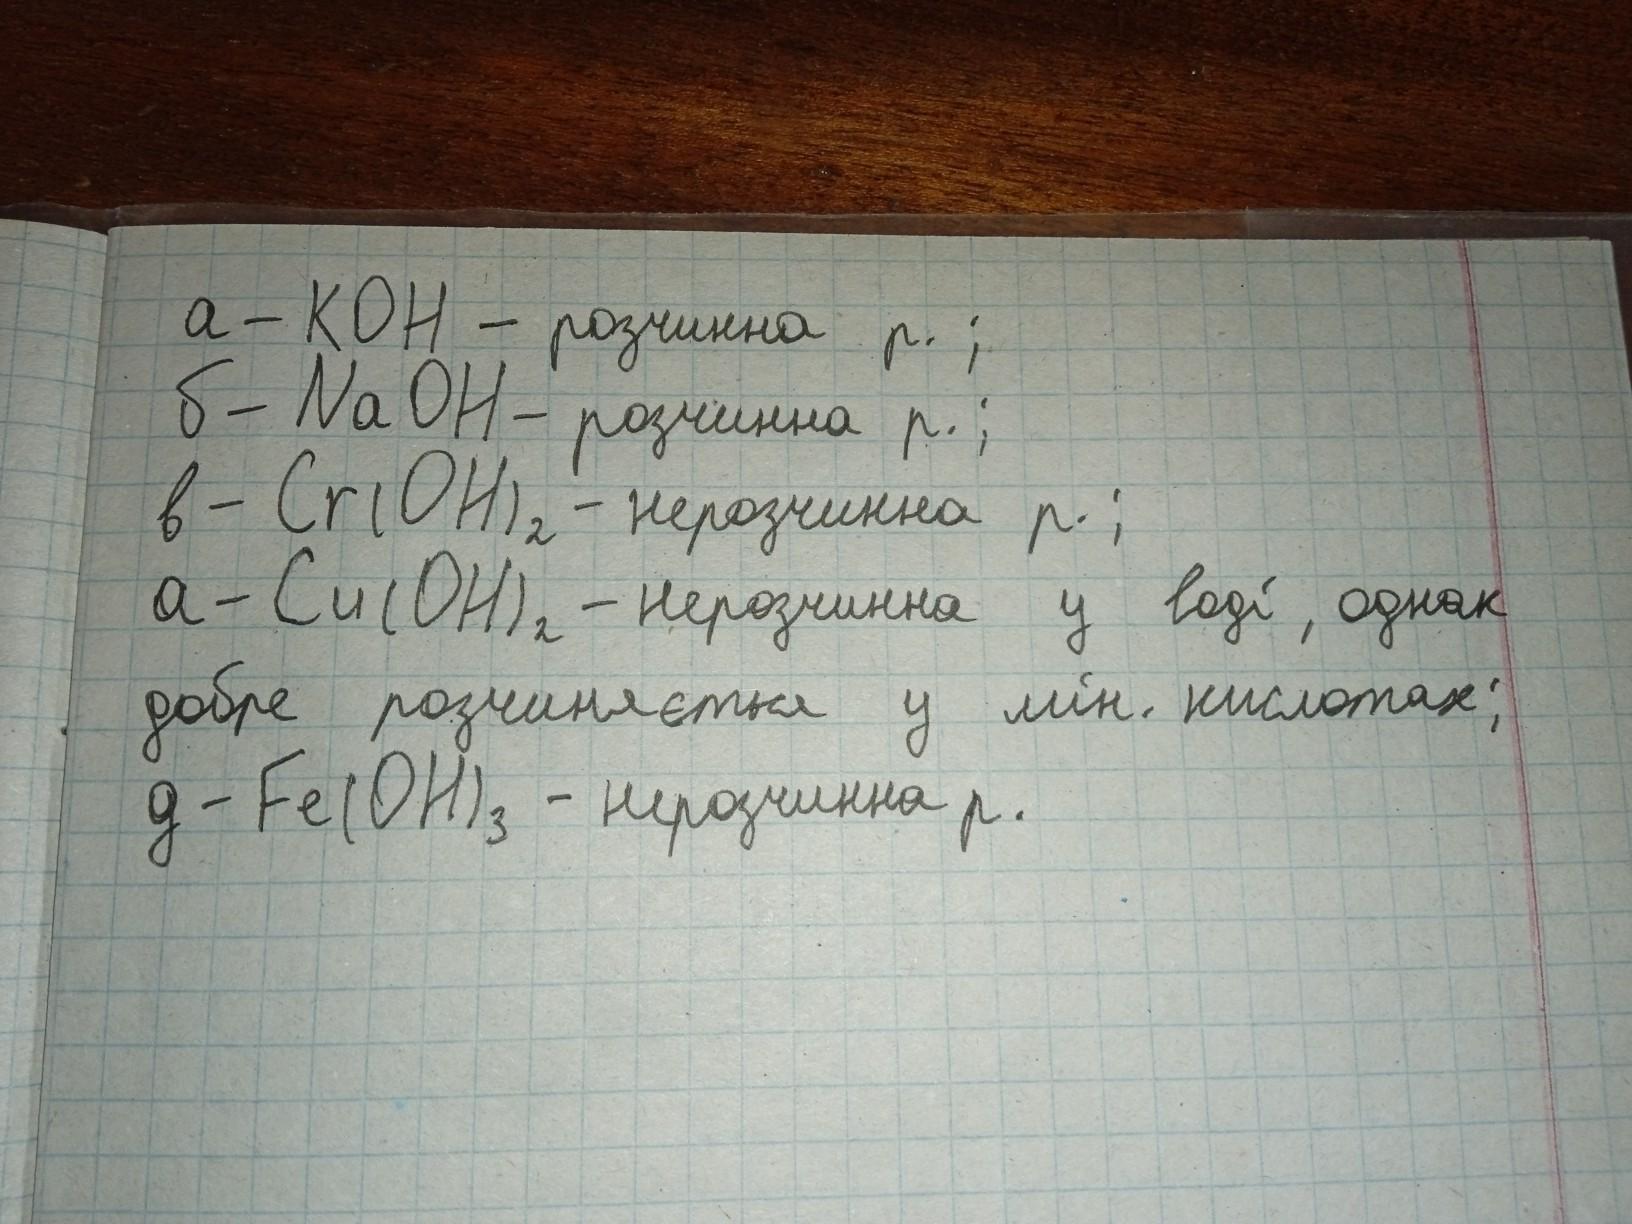 а – KOH – розчинна р. ;
б – NaOH – розчинна р. ;
в – Cr(OH)₂ – нерозчинна р. ;
а – Cu(OH)₂ – нерозчинна у воді, однак
добре розчиняється у мін. кислотах;
д – Fe(OH)₃ – нерозчинна р.